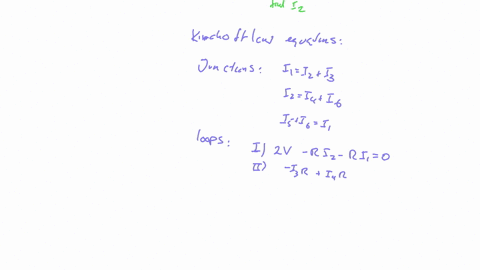 find I₂
Kirchoff laws equations:
Junctions: I₁=I₂+I₃
I₂=I₄+I₆
I₅+I₆=I₁
loops: I) 2V -RI₂-RI₁=0
II) -I₃R+I₄R